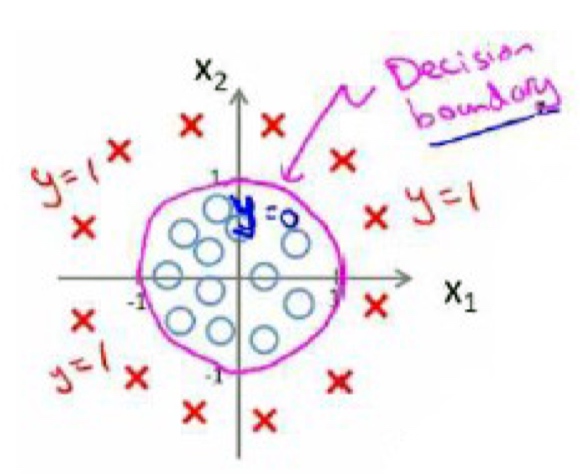 x₂
Decision
boundary
y=1
1
y=0
y=1
-1
1
x₁
y=1
-1